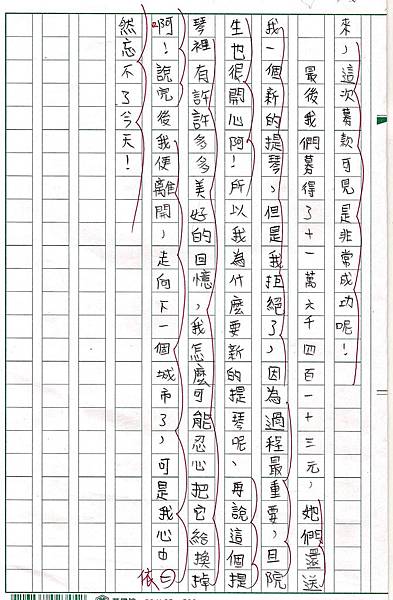 來，這次募款可見是非常成功呢！
最後我們募得了十一萬六千四百一十三元，她們還送
我一個新的提琴，但是我拒絕了，因為過程最重要，且院
生也很開心阿！所以我為什麼要新的提琴呢、再說這個提
琴裡有許許多多美好的回憶，我怎麼可能忍心把它給換掉
啊！說完後我便離開，走向下一個城市了，可是我心中
依
然忘不了今天！